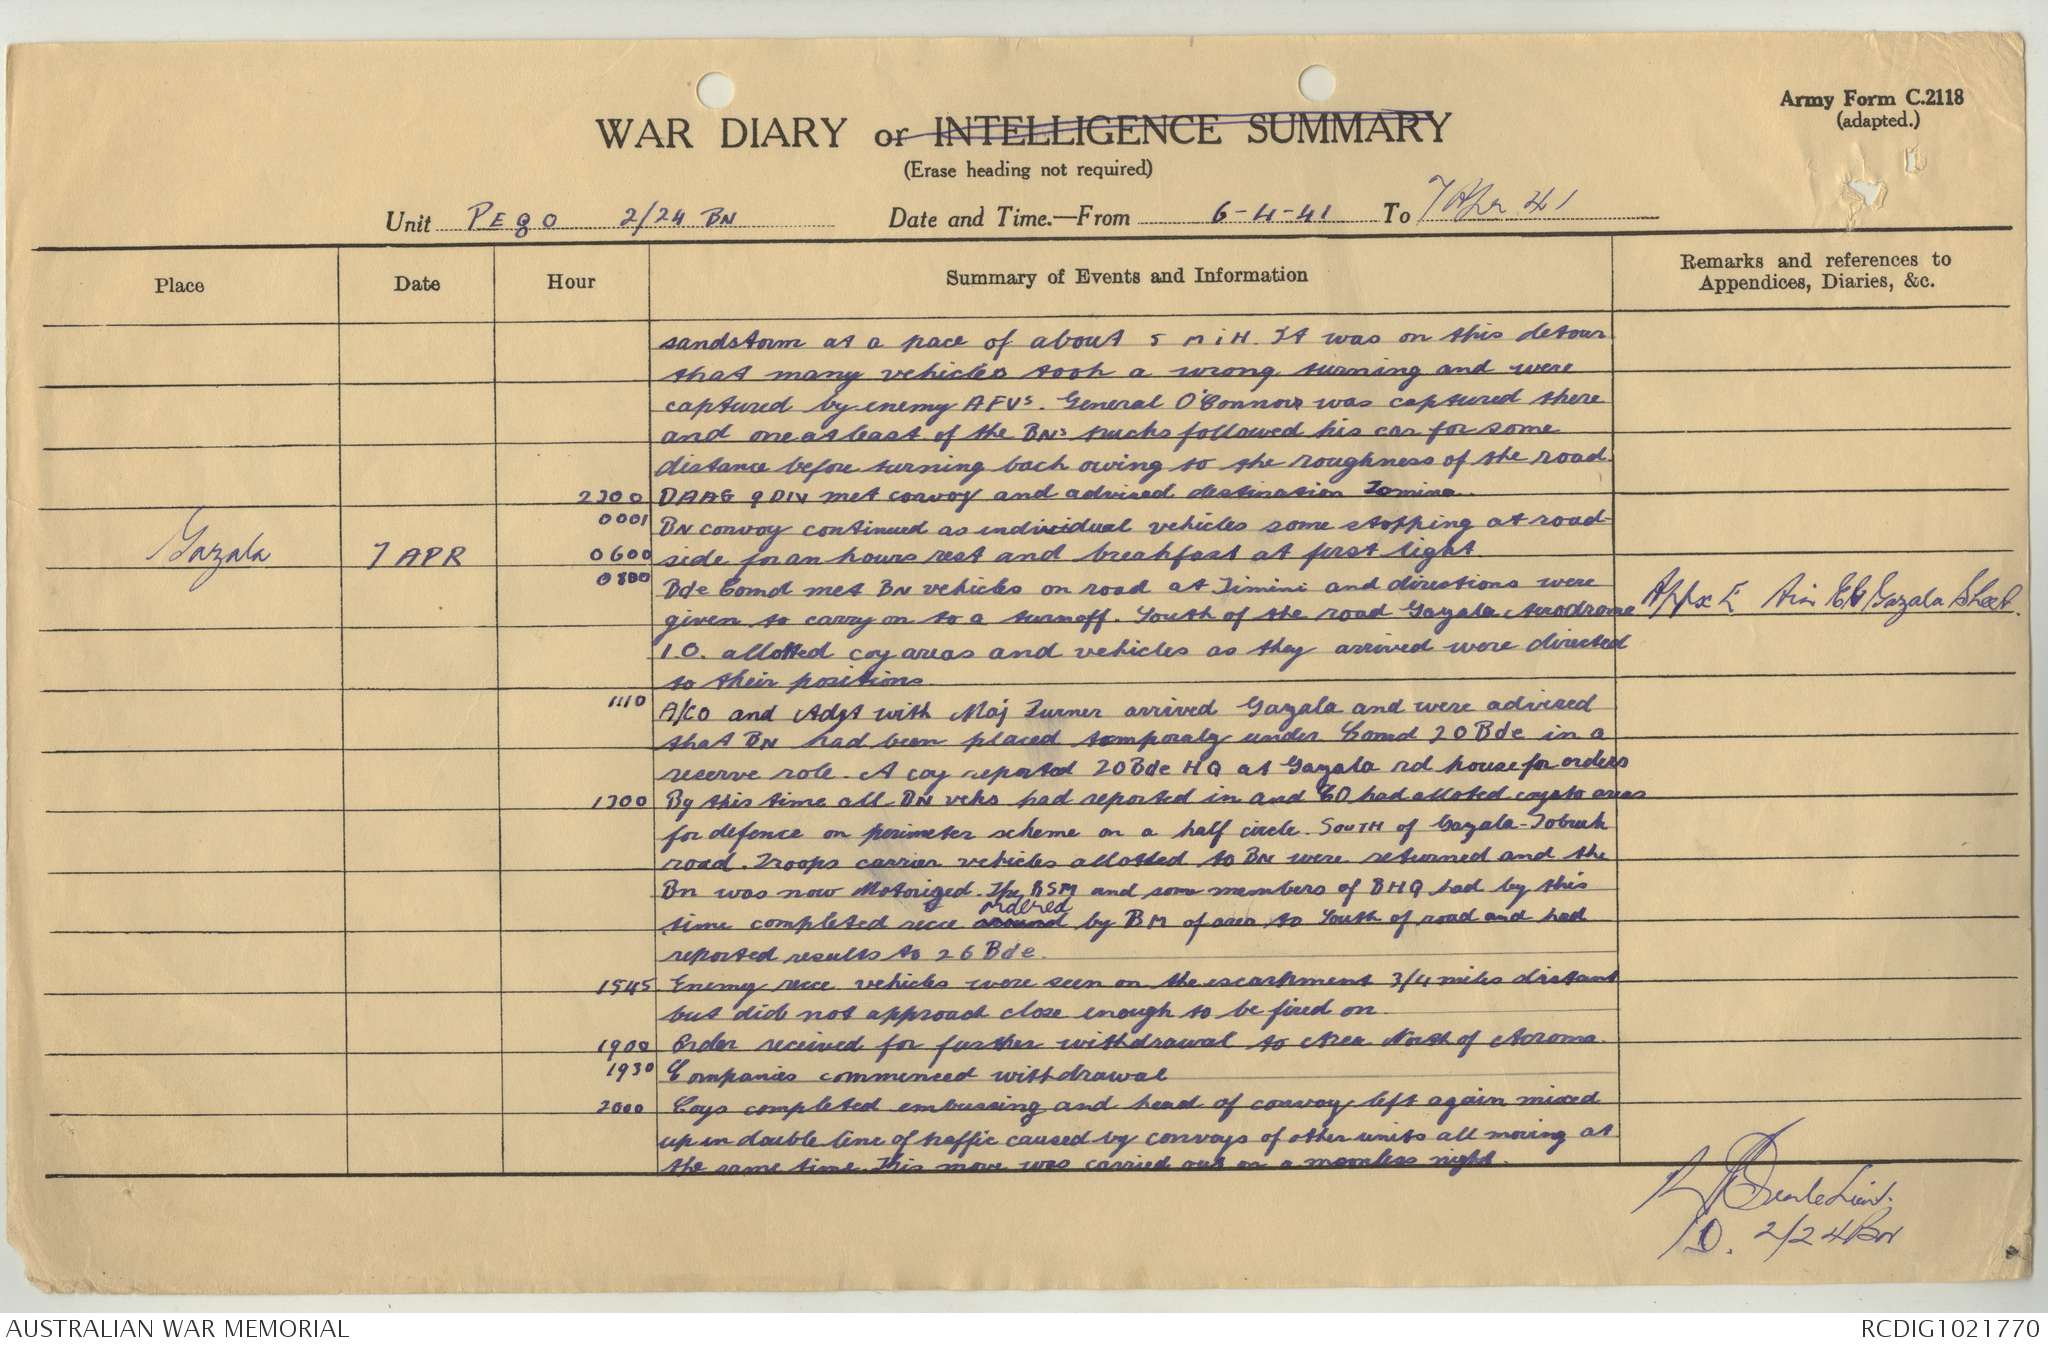 Army Form C.2118
(adapted.)
WAR DIARY or INTELLIGENCE SUMMARY
(Erase heading not required)
Unit PEGO 2/24 BN Date and Time.—From 6-4-41 To 7 Apr 41
Place Date Hour Summary of Events and Information Remarks and references to Appendices, Diaries, &c.
sandstorm at a pace of about 5 M.i.H. It was on this detour
that many vehicles took a wrong turning and were
captured by enemy AFVs. General O'Connor was captured there
and one at least of the BNs trucks followed his car for some
distance before turning back owing to the roughness of the road.
2300 DAAG 9 DIV met convoy and advised destination
0001 BN convoy continued as individual vehicles some stopping at road-
Gazala 7 APR 0600 side for an hours rest and breakfast at first light.
0800 Bde Comd met BN vehicles on road at Timini and directions were
given to carry on to a turnoff. South of the road Gazala Aerodrome Appx E Gazala Sheet.
I.O. allotted coy areas and vehicles as they arrived were directed
to their positions.
1110 A/CO and Adjt with Maj Turner arrived Gazala and were advised
that BN had been placed temporaly under Comd 20 Bde in a
reserve role. A coy reported 20 Bde HQ at Gazala rd house for orders
1300 By this time all BN vehs had reported in and CO had alloted coys to areas
for defence on perimeter scheme on a half circle. SOUTH of Gazala-Tobruk
road. Troops carrier vehicles allotted to BN were returned and the
Bn was now Motorized. The RSM and some members of BHQ had by this
time completed recce around ordered by BM of area to South of road and had
reported results to 26 Bde.
1545 Enemy recce vehicles were seen on the escarpment 3/4 miles distant
but did not approach close enough to be fired on.
1900 Order received for further withdrawal to Area North of Acroma.
1930 Companies commenced withdrawal
2000 Coys completed embussing and head of convoy left again mixed
up in double line of traffic caused by convoys of other units all moving at
the same time. This move was carried out on a moonless night.
Lieut.
IO. 2/24 Bn
AUSTRALIAN WAR MEMORIAL RCDIG1021770